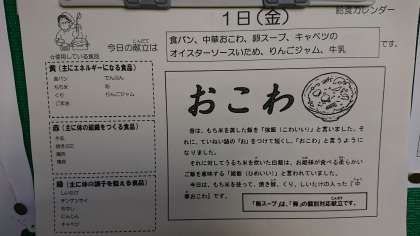 給食カレンダー
1日(金)
こんだて
今日の献立は
食パン、中華おこわ、卵スープ、キャベツの
オイスターソースいため、りんごジャム、牛乳
です。
☆使用している食品
黄(主にエネルギーになる食品)
食パン でんぷん
もち米 油
さとう りんごジャム
ごま油
赤(主に体の組織をつくる食品)
牛乳
焼きぶた
鶏肉
鶏卵
緑(主に体の調子を整える食品)
しいたけ
チンゲンサイ
もやし
にんじん
キャベツ
おこわ
昔は、もち米を蒸した飯を「強飯(こわいい)」と言いました。そ
れに、ていねい語の「お」をつけて短くし、「おこわ」と言うように
なりました。
それに対してうるち米を炊いた白飯は、お姫様が食べる柔らかい
ご飯を意味する「姫飯(ひめいい)」と言われていました。
今日は、もち米を使って、焼き豚、くり、しいたけの入った「中
華おこわ」です。
「卵スープ」は、「卵」の個別対応献立です。